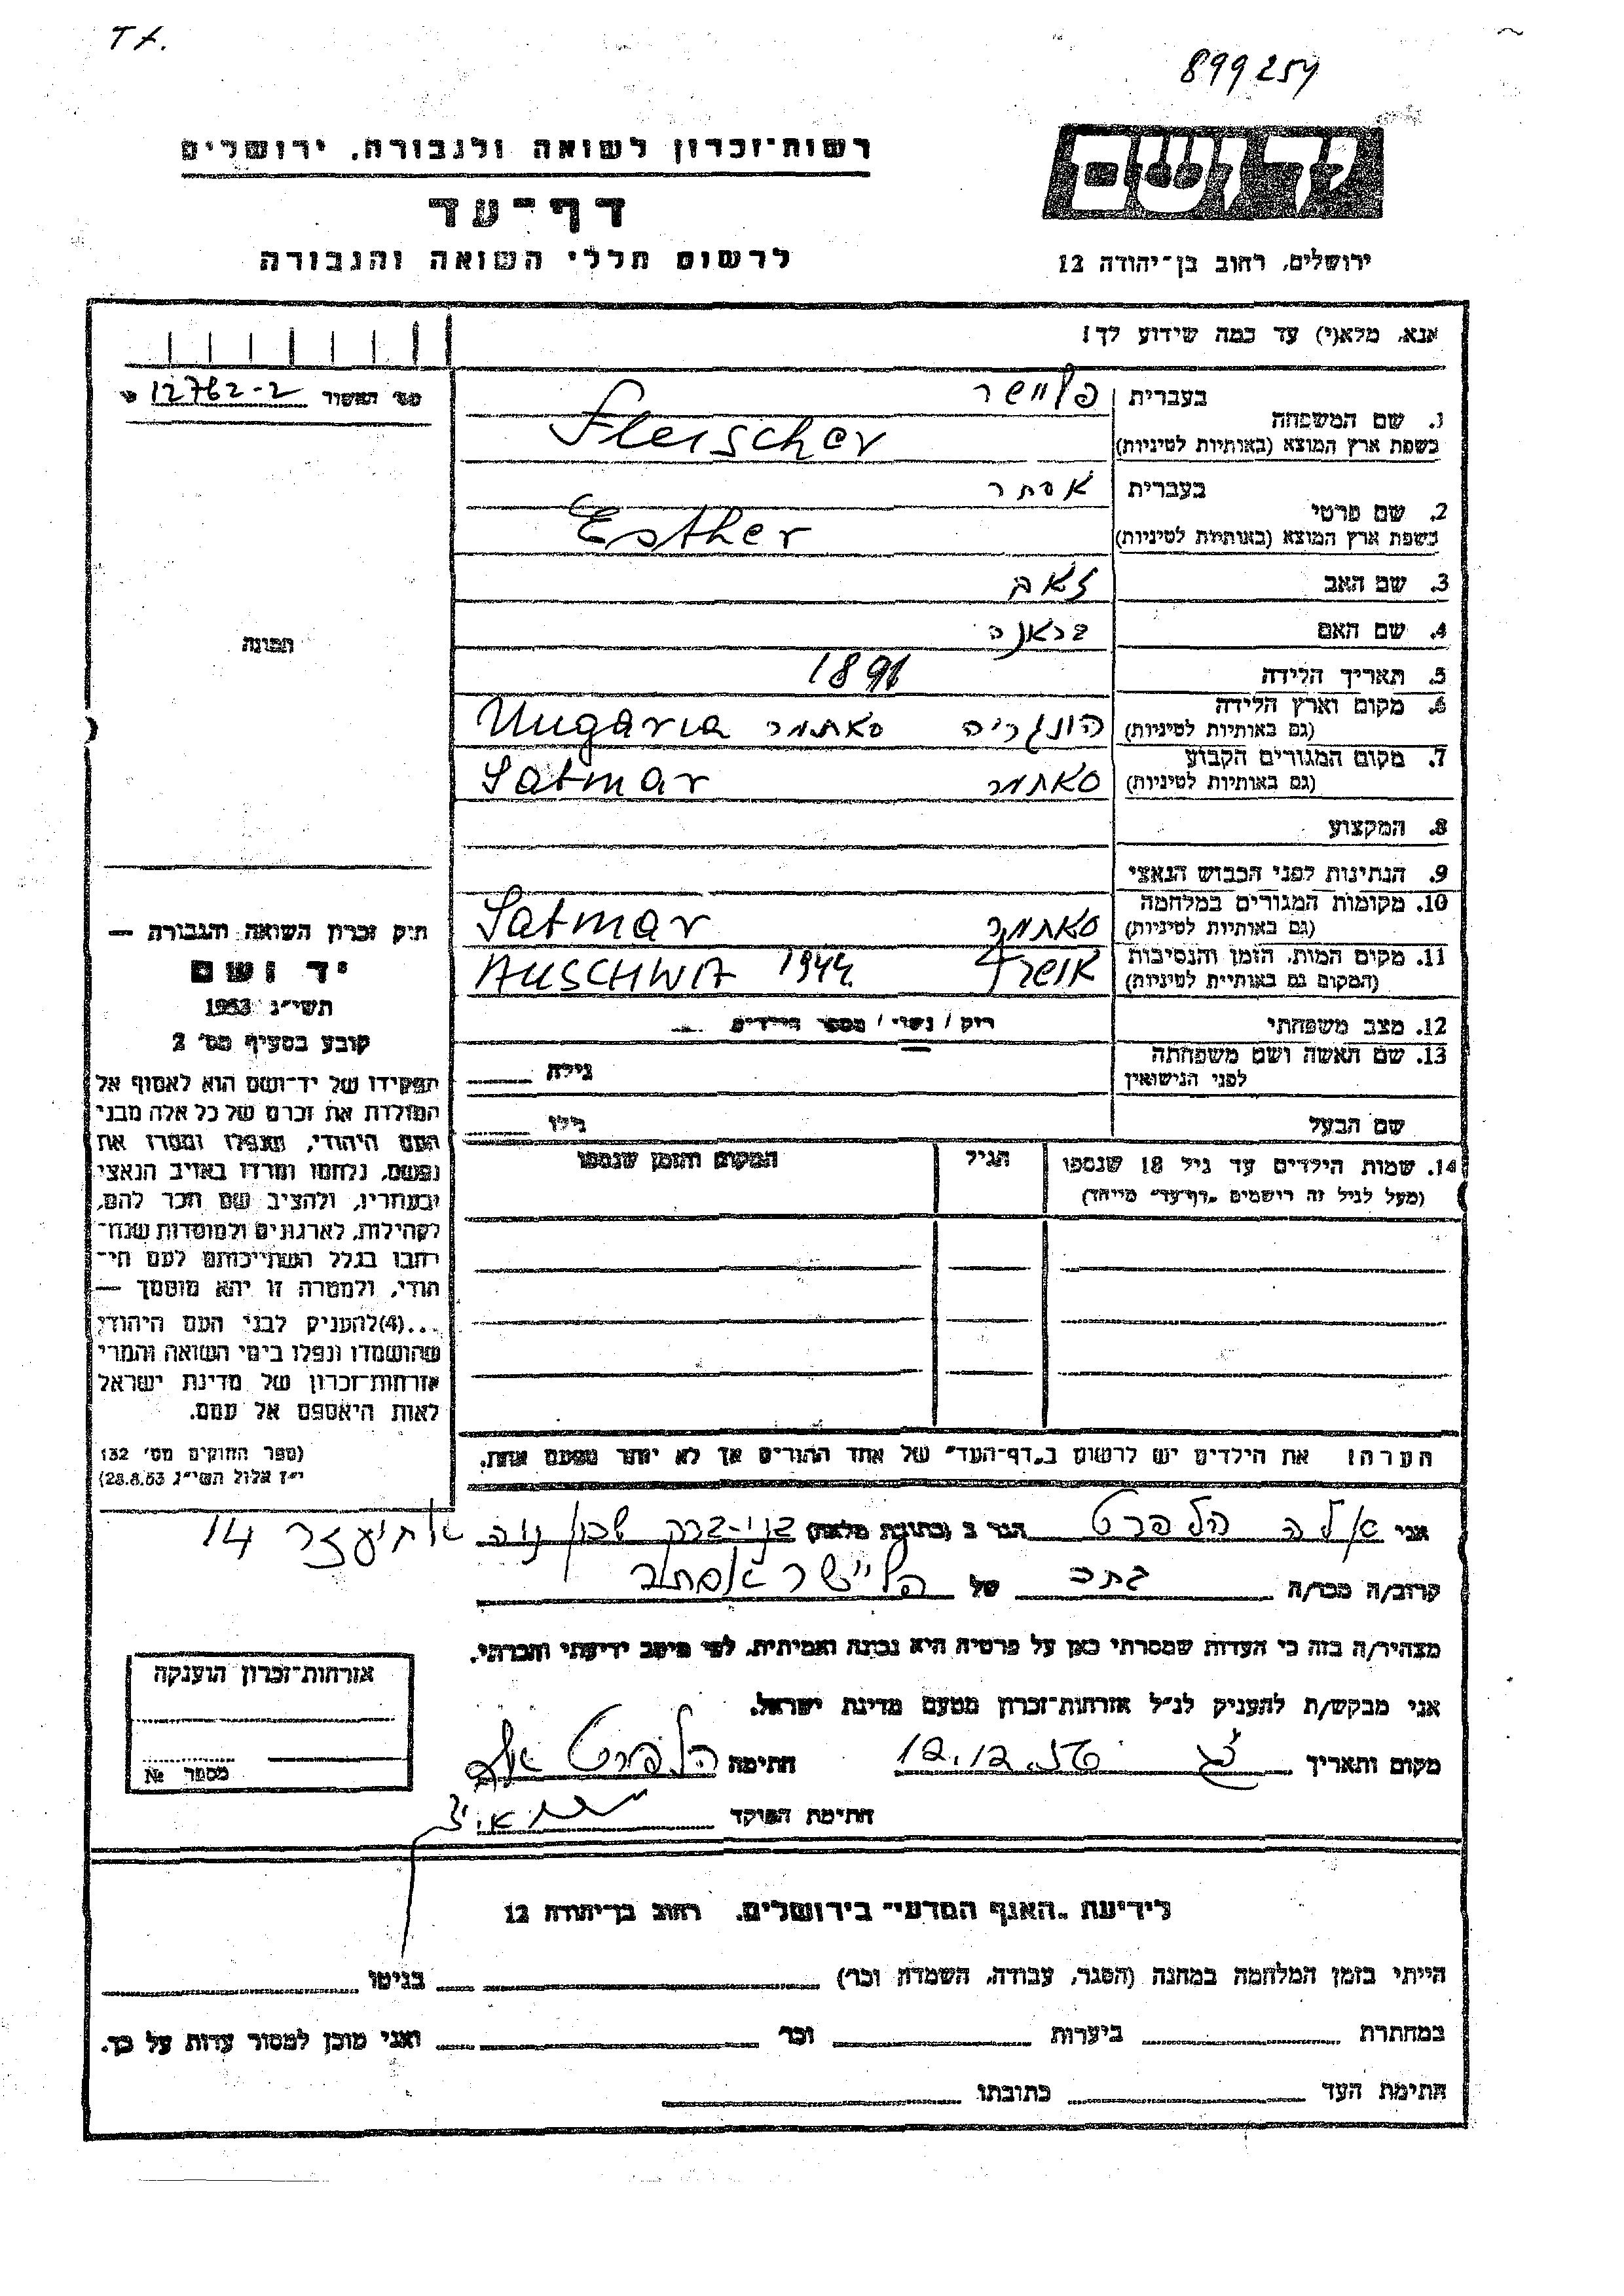 T f.
899254
רשות־זכרון לשואה ולגבורה, ירושלים
דף־עד
לרשום חללי השואה והגבורה
יד ושם
ירושלים, רחוב בן־יהודה 12
אנא, מלא(י) עד כמה שידוע לך!
מס' האשור 12762-2
תמונה
1. שם המשפחה
בעברית פליישר
בשפת ארץ המוצא (באותיות לטיניות) Fleischer
2. שם פרטי
בעברית אסתר
בשפת ארץ המוצא (באותיות לטיניות) Esther
3. שם האב זאב
4. שם האם
5. תאריך הלידה 1891
6. מקום וארץ הלידה (גם באותיות לטיניות) הונגריה סאתמר Ungaria
7. מקום המגורים הקבוע (גם באותיות לטיניות) סאתמר Satmar
8. המקצוע
9. הנתינות לפני הכבוש הנאצי
10. מקומות המגורים במלחמה (גם באותיות לטיניות) סאתמר Satmar
11. מקום המות, הזמן והנסיבות (המקום גם באותיות לטיניות) 1944 AUSCHWIA
12. מצב משפחתי רוק / נשוי / מספר הילדים
13. שם האשה ושם משפחתה לפני הנישואין גילה
שם הבעל גילו
14. שמות הילדים עד גיל 18 שנספו
(מעל לגיל זה רושמים „דף־עד" מיוחד)
הגיל
המקום והזמן שנספו
הערה: את הילדים יש לרשום ב„דף־העד" של אחד ההורים אך לא יותר מפעם אחת.
חוק זכרון השואה והגבורה —
יד ושם
תשי"ג 1953
קובע בסעיף מס' 2
תפקידו של יד־ושם הוא לאסוף אל
המולדת את זכרם של כל אלה מבני
העם היהודי, שנפלו ומסרו את
נפשם, נלחמו ומרדו באויב הנאצי
ובעוזריו, ולהציב שם וזכר להם,
לקהילות, לארגונים ולמוסדות שנח־
רבו בגלל השתייכותם לעם הי־
הודי, ולמטרה זו יהא מוסמך —
...(4) להעניק לבני העם היהודי
שהושמדו ונפלו בימי השואה והמרי
אזרחות־זכרון של מדינת ישראל
לאות היאספם אל עמם.
(ספר החוקים מס' 132
י"ז אלול תשי"ג 28.8.53)
אני אלה הלפרט הגר ב (כתובת מלאה) בני-ברק שכון נוה אחיעזר 14
קרוב/ה מכר/ה בתה של פליישר אסתר
מצהיר/ה בזה כי העדות שמסרתי כאן על פרטיה היא נכונה ואמיתית, לפי מיטב ידיעתי והכרתי.
אני מבקש/ת להעניק לנ"ל אזרחות־זכרון מטעם מדינת ישראל.
מקום ותאריך 12.12 חתימה הלפרט אלה
חתימת הפוקד
אזרחות־זכרון הוענקה
מספר №
לידיעת „האגף המדעי" בירושלים, רחוב בן־יהודה 12
הייתי בזמן המלחמה במחנה (הסגר, עבודה, השמדה וכו') בגיטו
במחתרת ביערות וכו' ואני מוכן למסור עדות על כך.
חתימת העד כתובתו